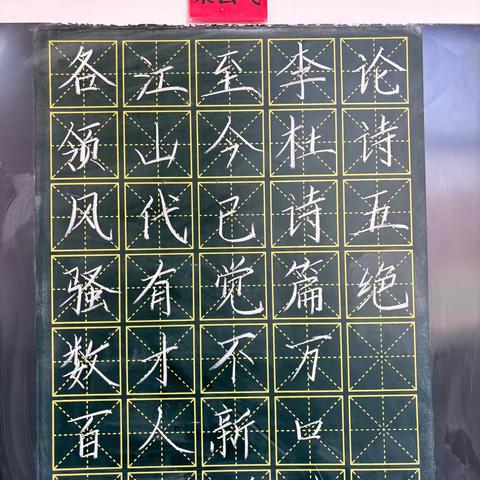 论诗五绝
李杜诗篇万口
至今已觉不新
江山代有才人
各领风骚数百